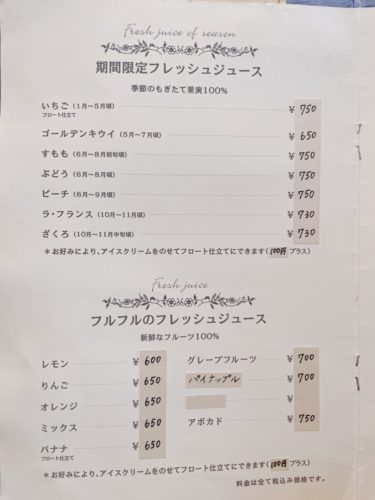 Fresh juice of season
期間限定フレッシュジュース
季節のもぎたて果実100%
いちご（1月〜5月頃） ¥ 750
フロート仕立て
ゴールデンキウイ（5月〜7月頃） ¥ 650
すもも（6月〜8月初旬頃） ¥ 750
ぶどう（6月〜8月頃） ¥ 750
ピーチ（6月〜9月頃） ¥ 750
ラ・フランス（10月〜11月頃） ¥ 730
ざくろ（10月〜11月中旬頃） ¥ 730
＊お好みにより、アイスクリームをのせてフロート仕立てにできます（100円プラス）
Fresh juice
フルフルのフレッシュジュース
新鮮なフルーツ100%
レモン ¥ 600
りんご ¥ 650
オレンジ ¥ 650
ミックス ¥ 650
バナナ ¥ 650
フロート仕立て
グレープフルーツ ¥ 700
パイナップル ¥ 700
¥
アボカド ¥ 750
＊お好みにより、アイスクリームをのせてフロート仕立てにできます（100円プラス）
料金は全て税込み価格です。